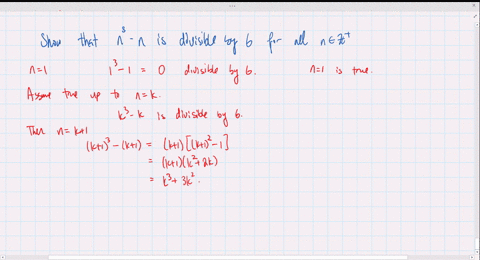 Show that n³ - n is divisible by 6 for all n∈ℤ⁺
n=1 1³ - 1 = 0 divisible by 6. n=1 is true.
Assume true up to n=k.
k³ - k is divisible by 6.
Then n=k+1
(k+1)³ - (k+1) = (k+1)[(k+1)² - 1]
= (k+1)(k² + 2k)
= k³ + 3k²